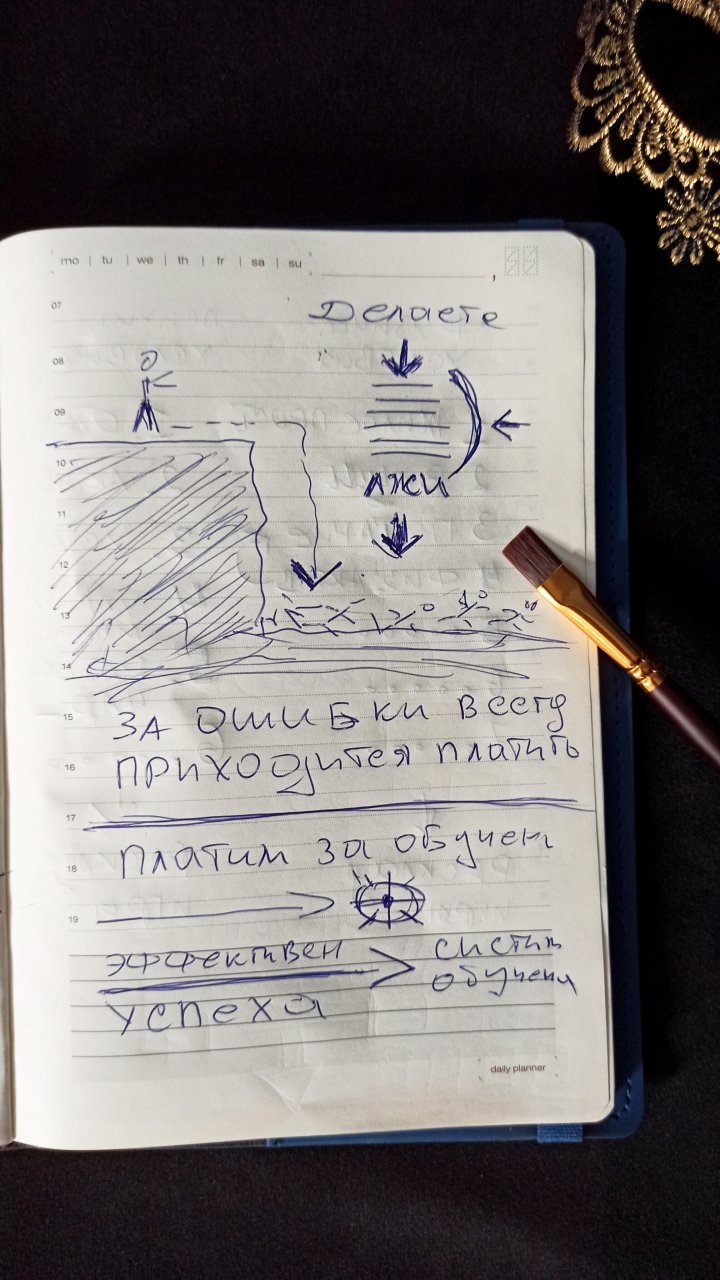 mo | tu | we | th | fr | sa | su
07
Делаете
08
09
10
лжи
11
12
13
14
15
ЗА ОШИБКИ всегд
16
ПРИХОДИТСЯ ПЛАТИТЬ
17
ПЛАТИМ ЗА обучен
18
19
ЭФФЕКТИВЕН
систем
обучени
УСПЕХА
daily planner